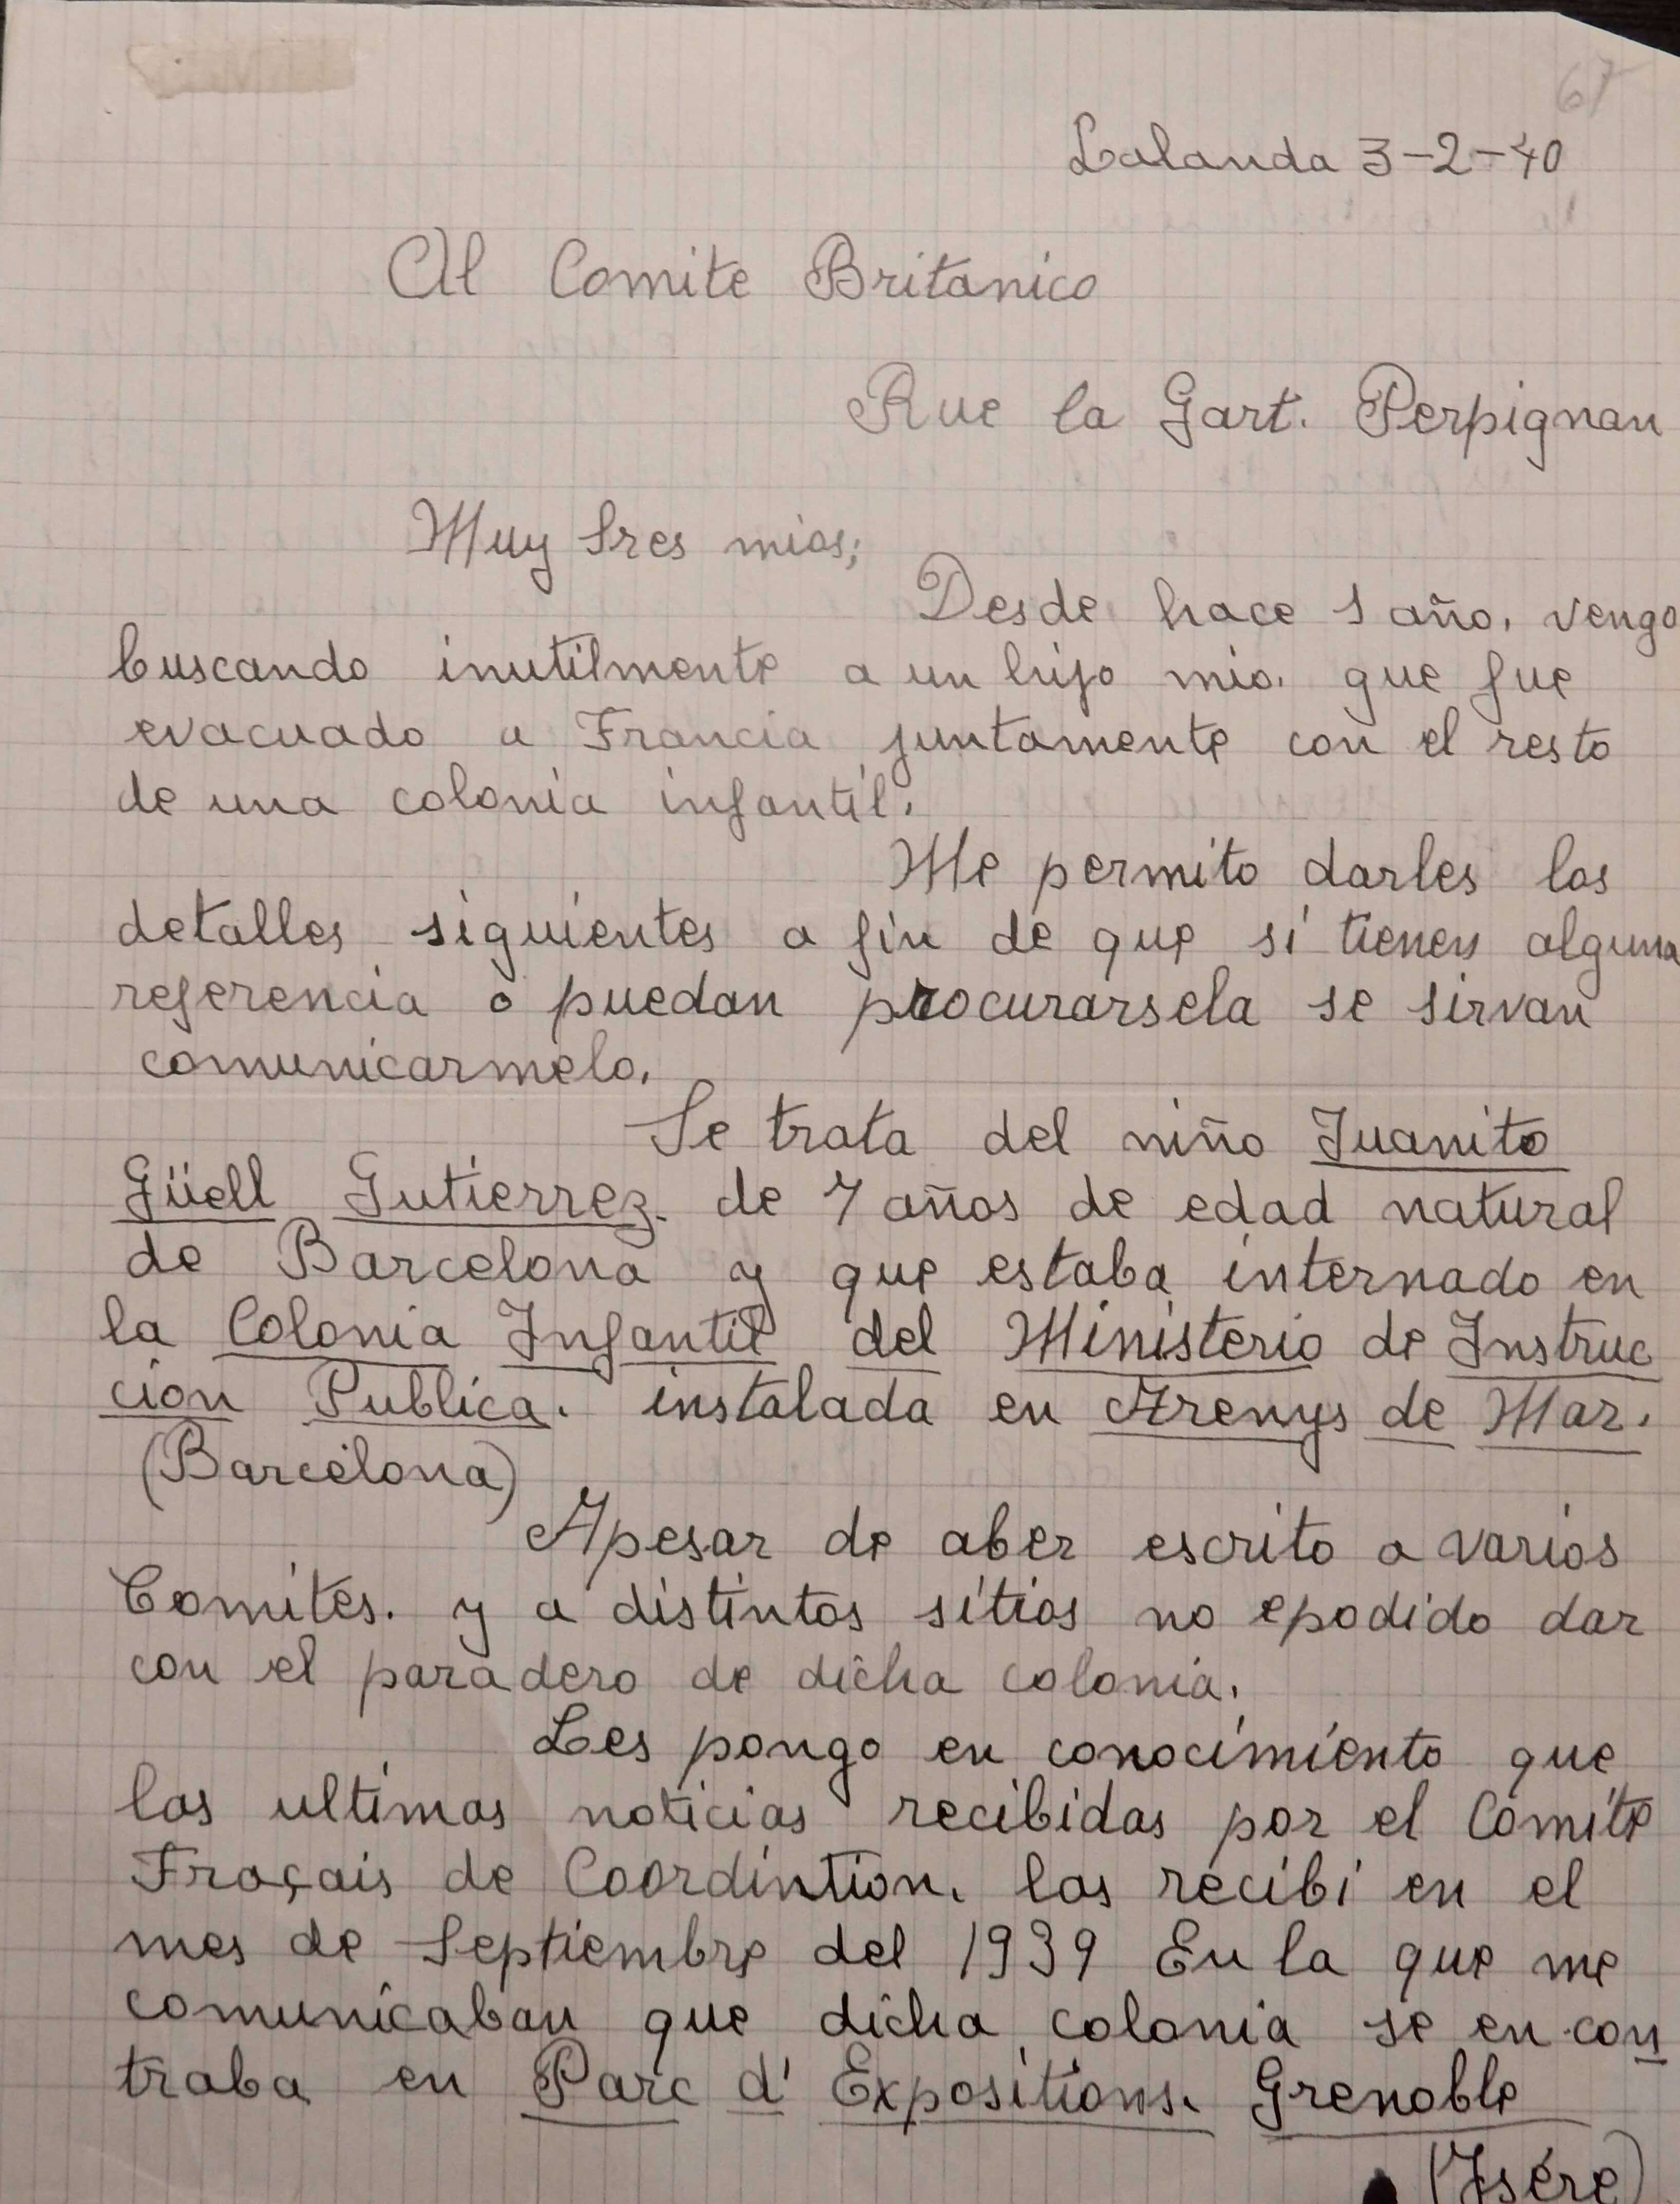 67
Lalanda 3-2-40
Al Comite Britanico
Rue la Gart. Perpignan
Muy Sres mios;
Desde hace 1 año. vengo
buscando inutilmente a un hijo mio. que fue
evacuado a Francia juntamente con el resto
de una colonia infantil.
Me permito darles los
detalles siguientes a fin de que si tienen alguna
referencia o puedan procurarsela se sirvan
comunicarmelo.
Se trata del niño Juanito
Güell Gutierrez. de 7 años de edad natural
de Barcelona y que estaba internado en
la Colonia Infantil del Ministerio de Instruc
cion Publica. instalada en Arenys de Mar.
(Barcelona)
Apesar de aber escrito a varios
Comites. y a distintos sitios no epodido dar
con el paradero de dicha colonia.
Les pongo en conocimiento que
las ultimas noticias recibidas por el Comite
Fraçais de Coordintion. las recibi en el
mes de Septiembre del 1939 En la que me
comunicaban que dicha colonia se en con
traba en Parc d' Expositions. Grenoble
(Isére)